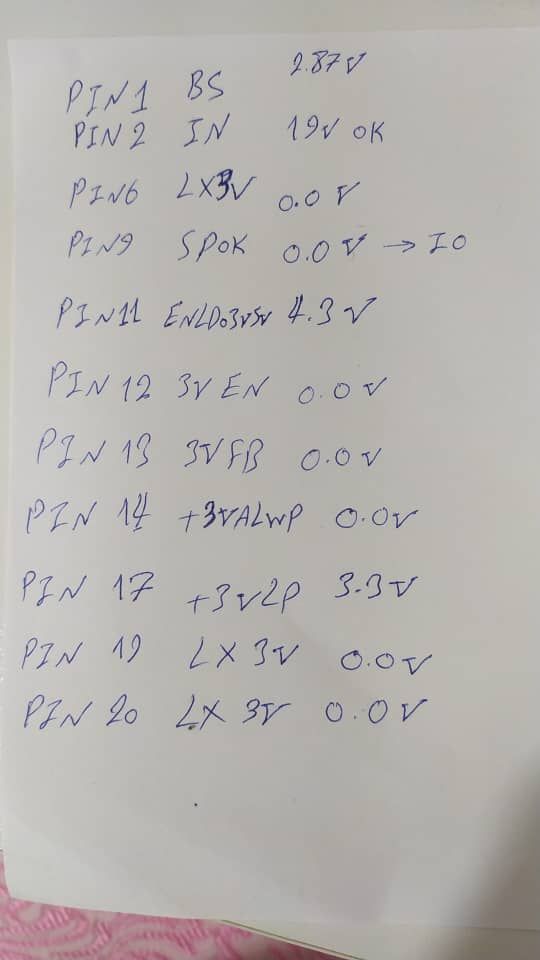 PIN1 BS 2.87V
PIN2 IN 19V OK
PIN6 LX3V 0.0V
PIN9 SPOK 0.0V → IO
PIN11 ENLDO3V5V 4.3V
PIN 12 3V EN 0.0V
PIN 13 3VFB 0.0V
PIN 14 +3VALWP 0.0V
PIN 17 +3VLP 3.3V
PIN 19 LX 3V 0.0V
PIN 20 LX 3V 0.0V